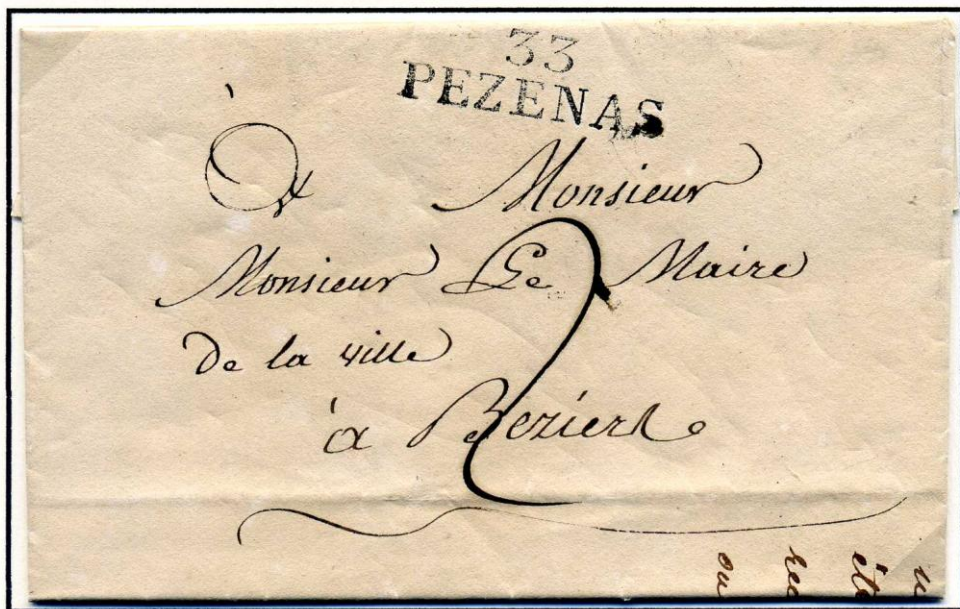 33
PEZENAS
À Monsieur
Monsieur Le Maire
de la ville
à Beziers
2